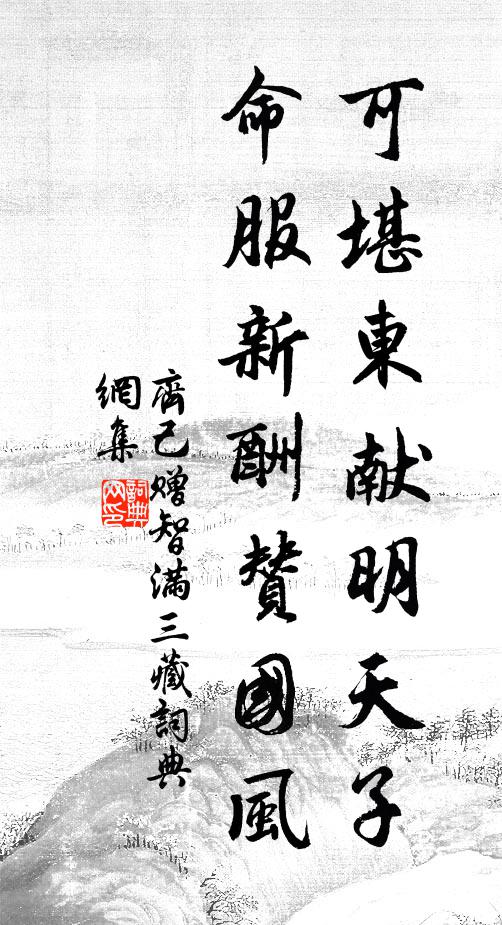 可堪東献明天子
命服新酬贊國風
齊己赠智满三藏詞典
網集
詞典
网印